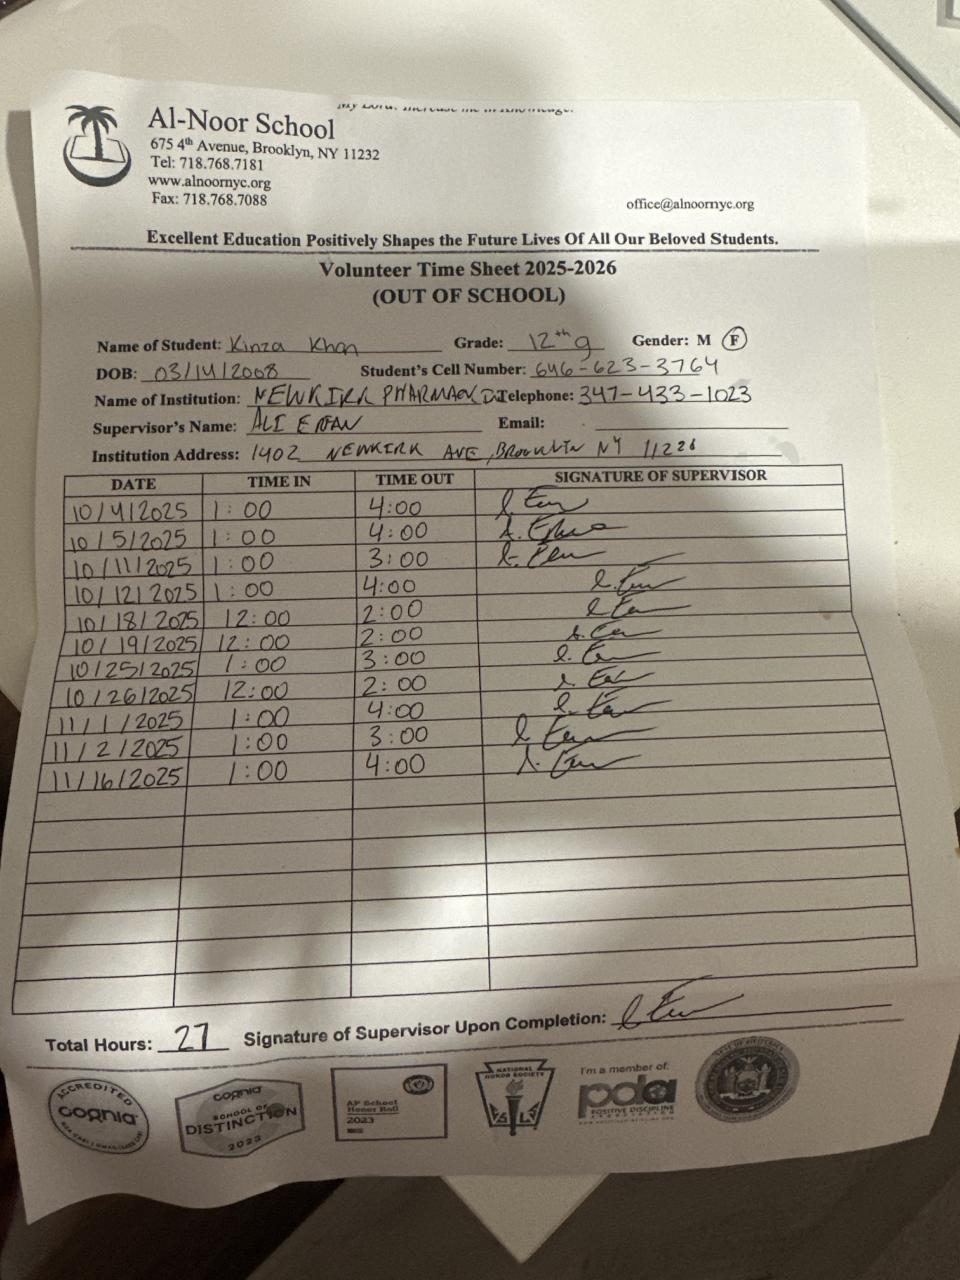 Al-Noor School
675 4th Avenue, Brooklyn, NY 11232
Tel: 718.768.7181
www.alnoornyc.org
Fax: 718.768.7088
office@alnoornyc.org
Excellent Education Positively Shapes the Future Lives Of All Our Beloved Students.
Volunteer Time Sheet 2025-2026
(OUT OF SCHOOL)
Name of Student: Kinza Khan Grade: 12th g Gender: M F
DOB: 03/14/2008 Student's Cell Number: 646-623-3764
Name of Institution: NEWKIRK PHARMACY Telephone: 347-433-1023
Supervisor's Name: ALI Email:
Institution Address: 1402 NEWKIRK AVE, BROOKLIN NY 11226
DATE TIME IN TIME OUT SIGNATURE OF SUPERVISOR
10/4/2025 1:00 4:00
10/5/2025 1:00 4:00
10/11/2025 1:00 3:00
10/12/2025 1:00 4:00
10/18/2025 12:00 2:00
10/19/2025 12:00 2:00
10/25/2025 1:00 3:00
10/26/2025 12:00 2:00
11/1/2025 1:00 4:00
11/2/2025 1:00 3:00
11/16/2025 1:00 4:00
Total Hours: 27 Signature of Supervisor Upon Completion:
ACCREDITED
cognia
cognia
SCHOOL OF
DISTINCTION
2022
AP School
Honor Roll
2023
NATIONAL
HONOR SOCIETY
I'm a member of:
pda
POSITIVE DISCIPLINE
ASSOCIATION